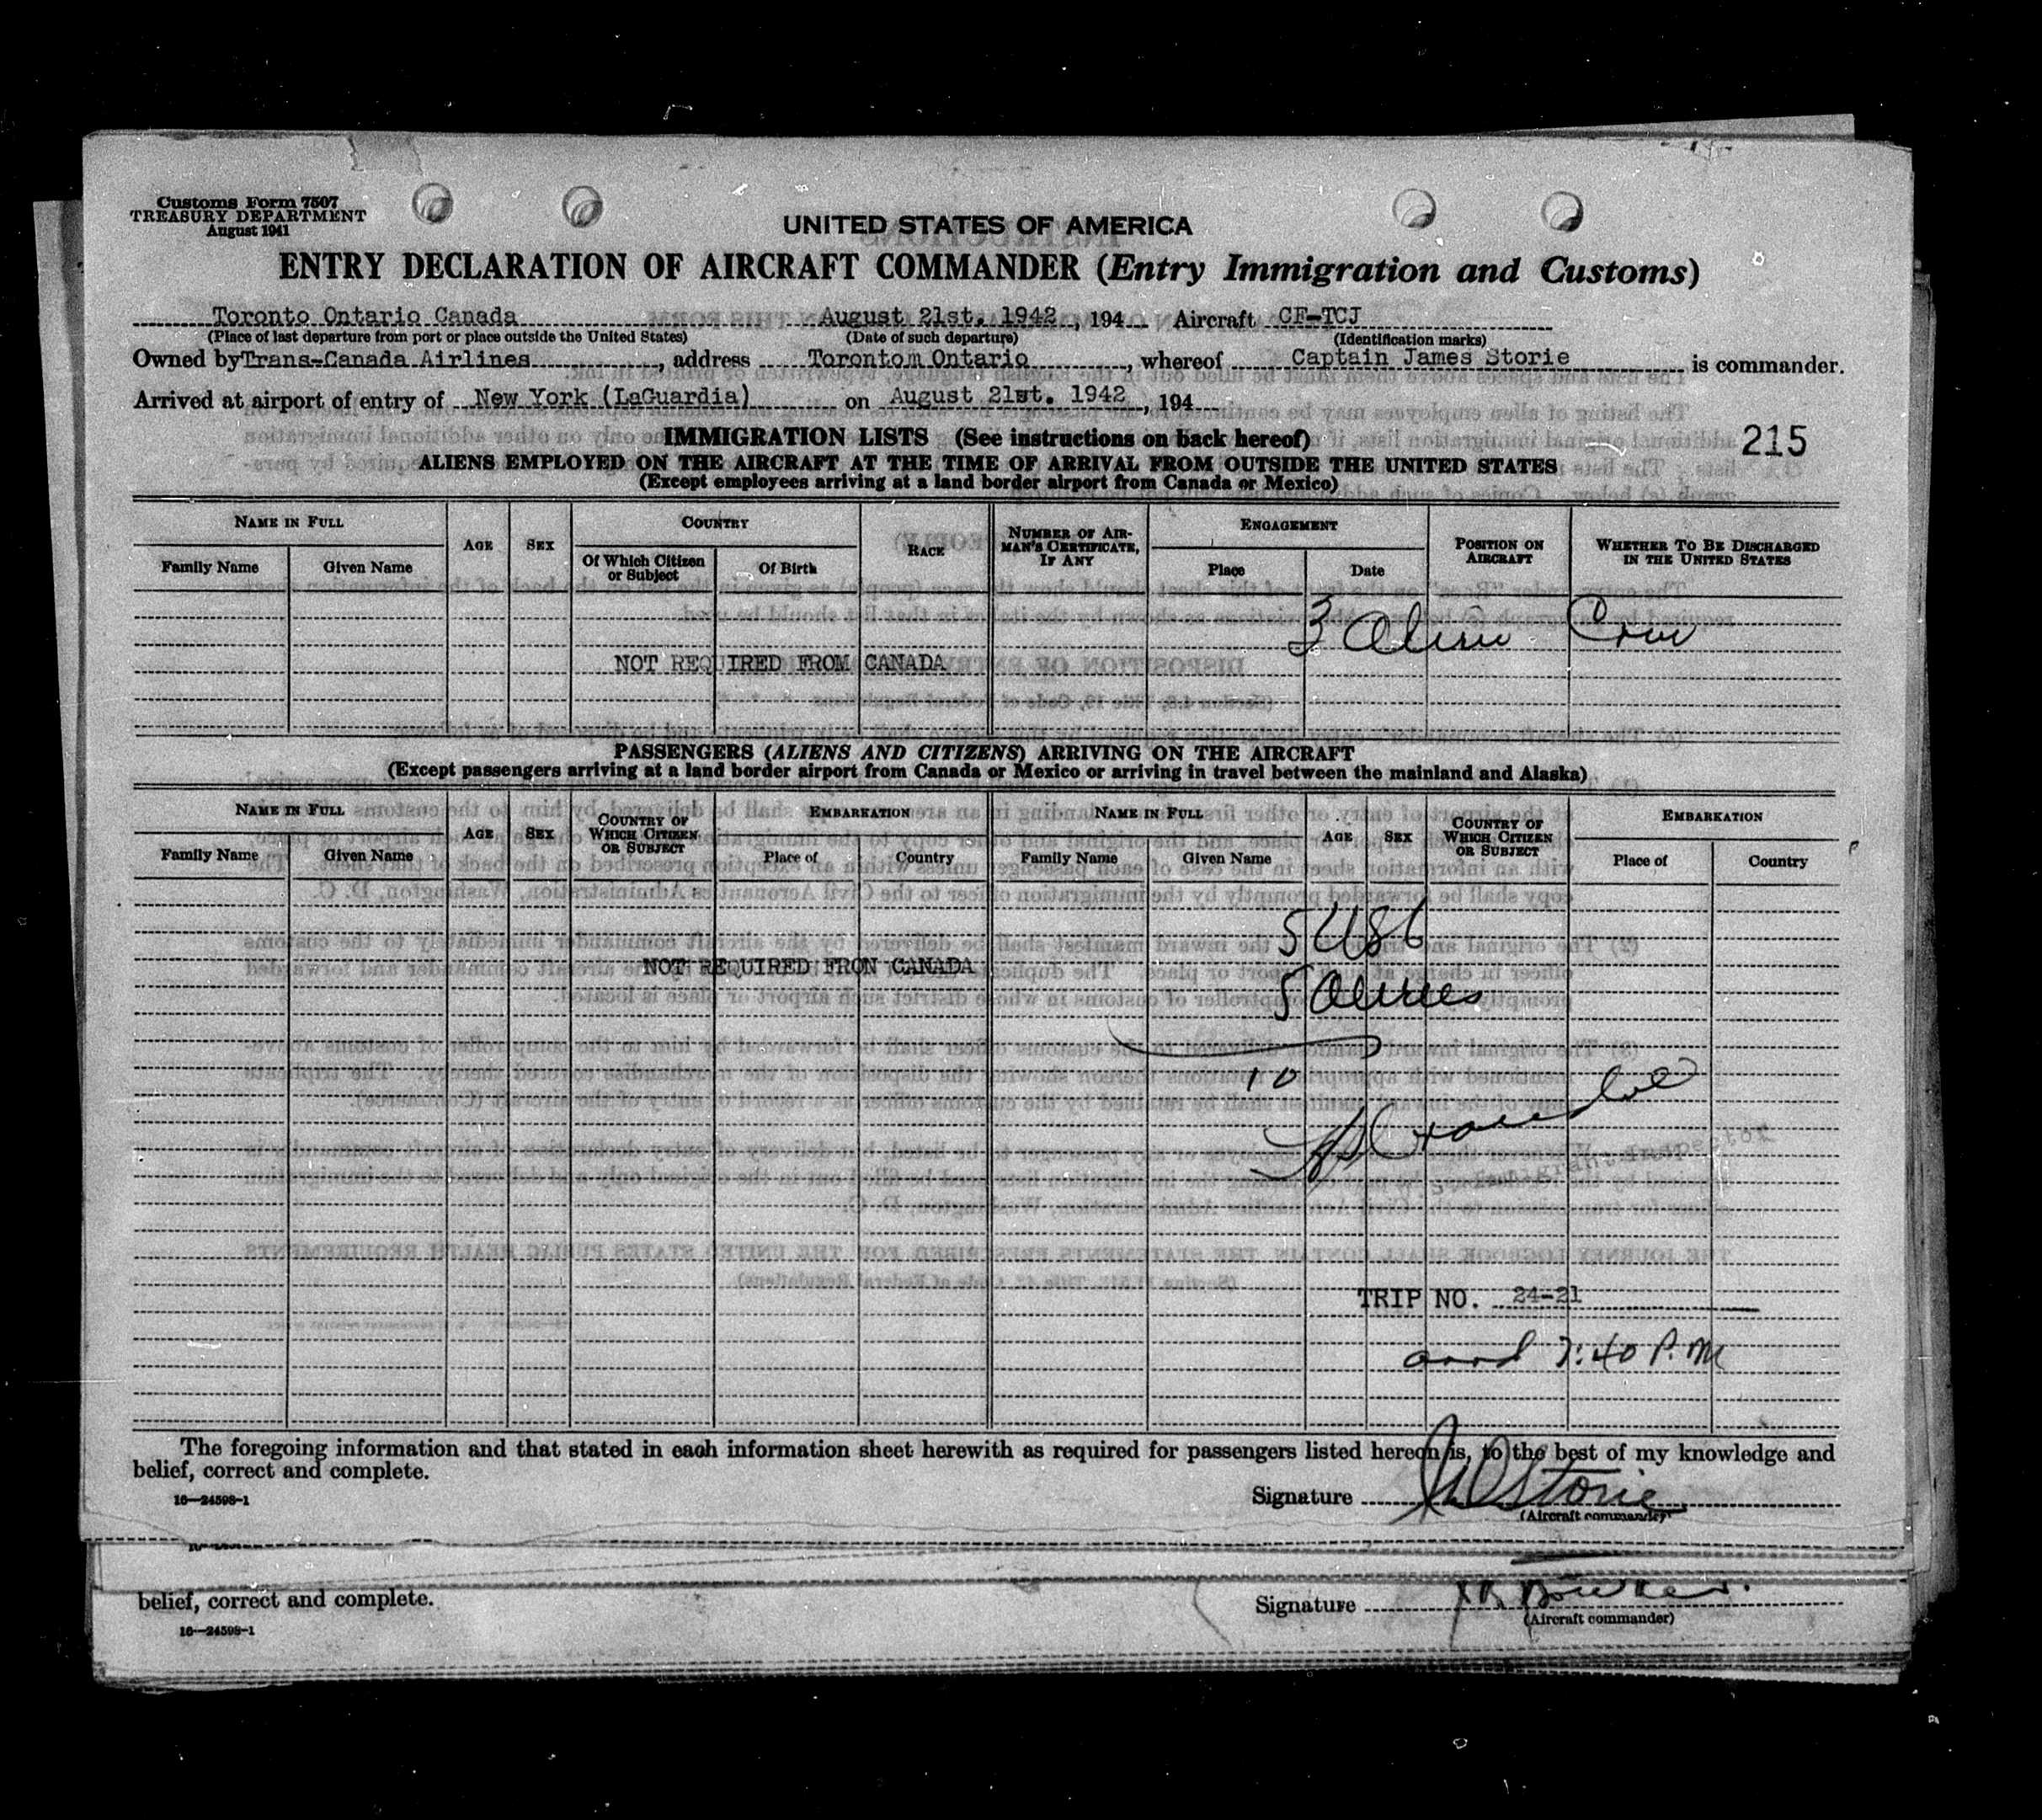 Customs Form 7507
TREASURY DEPARTMENT
August 1941
UNITED STATES OF AMERICA
ENTRY DECLARATION OF AIRCRAFT COMMANDER (Entry Immigration and Customs)
Toronto Ontario Canada August 21st. 1942, 194 Aircraft CF-TCJ
(Place of last departure from port or place outside the United States) (Date of such departure) (Identification marks)
Owned by Trans-Canada Airlines, address Torontom Ontario, whereof Captain James Storie is commander.
Arrived at airport of entry of New York (LaGuardia) on August 21st. 1942, 194
IMMIGRATION LISTS (See instructions on back hereof)
215
ALIENS EMPLOYED ON THE AIRCRAFT AT THE TIME OF ARRIVAL FROM OUTSIDE THE UNITED STATES
(Except employees arriving at a land border airport from Canada or Mexico)
NAME IN FULL AGE SEX COUNTRY RACE NUMBER OF AIRMAN'S CERTIFICATE, IF ANY ENGAGEMENT POSITION ON AIRCRAFT WHETHER TO BE DISCHARGED IN THE UNITED STATES
Family Name Given Name Of Which Citizen or Subject Of Birth Place Date
3 Alien Crew
NOT REQUIRED FROM CANADA
PASSENGERS (ALIENS AND CITIZENS) ARRIVING ON THE AIRCRAFT
(Except passengers arriving at a land border airport from Canada or Mexico or arriving in travel between the mainland and Alaska)
NAME IN FULL AGE SEX COUNTRY OF WHICH CITIZEN OR SUBJECT EMBARKATION NAME IN FULL AGE SEX COUNTRY OF WHICH CITIZEN OR SUBJECT EMBARKATION
Family Name Given Name Place of Country Family Name Given Name Place of Country
5 USC
NOT REQUIRED FRON CANADA
5 Aliens
10
Immigrant Inspector
TRIP NO. 24-21
arrd 7:40 P.M
The foregoing information and that stated in each information sheet herewith as required for passengers listed hereon is, to the best of my knowledge and
belief, correct and complete.
16—24598-1
Signature Storie
(Aircraft commander)
belief, correct and complete.
Signature
(Aircraft commander)
16—24598-1